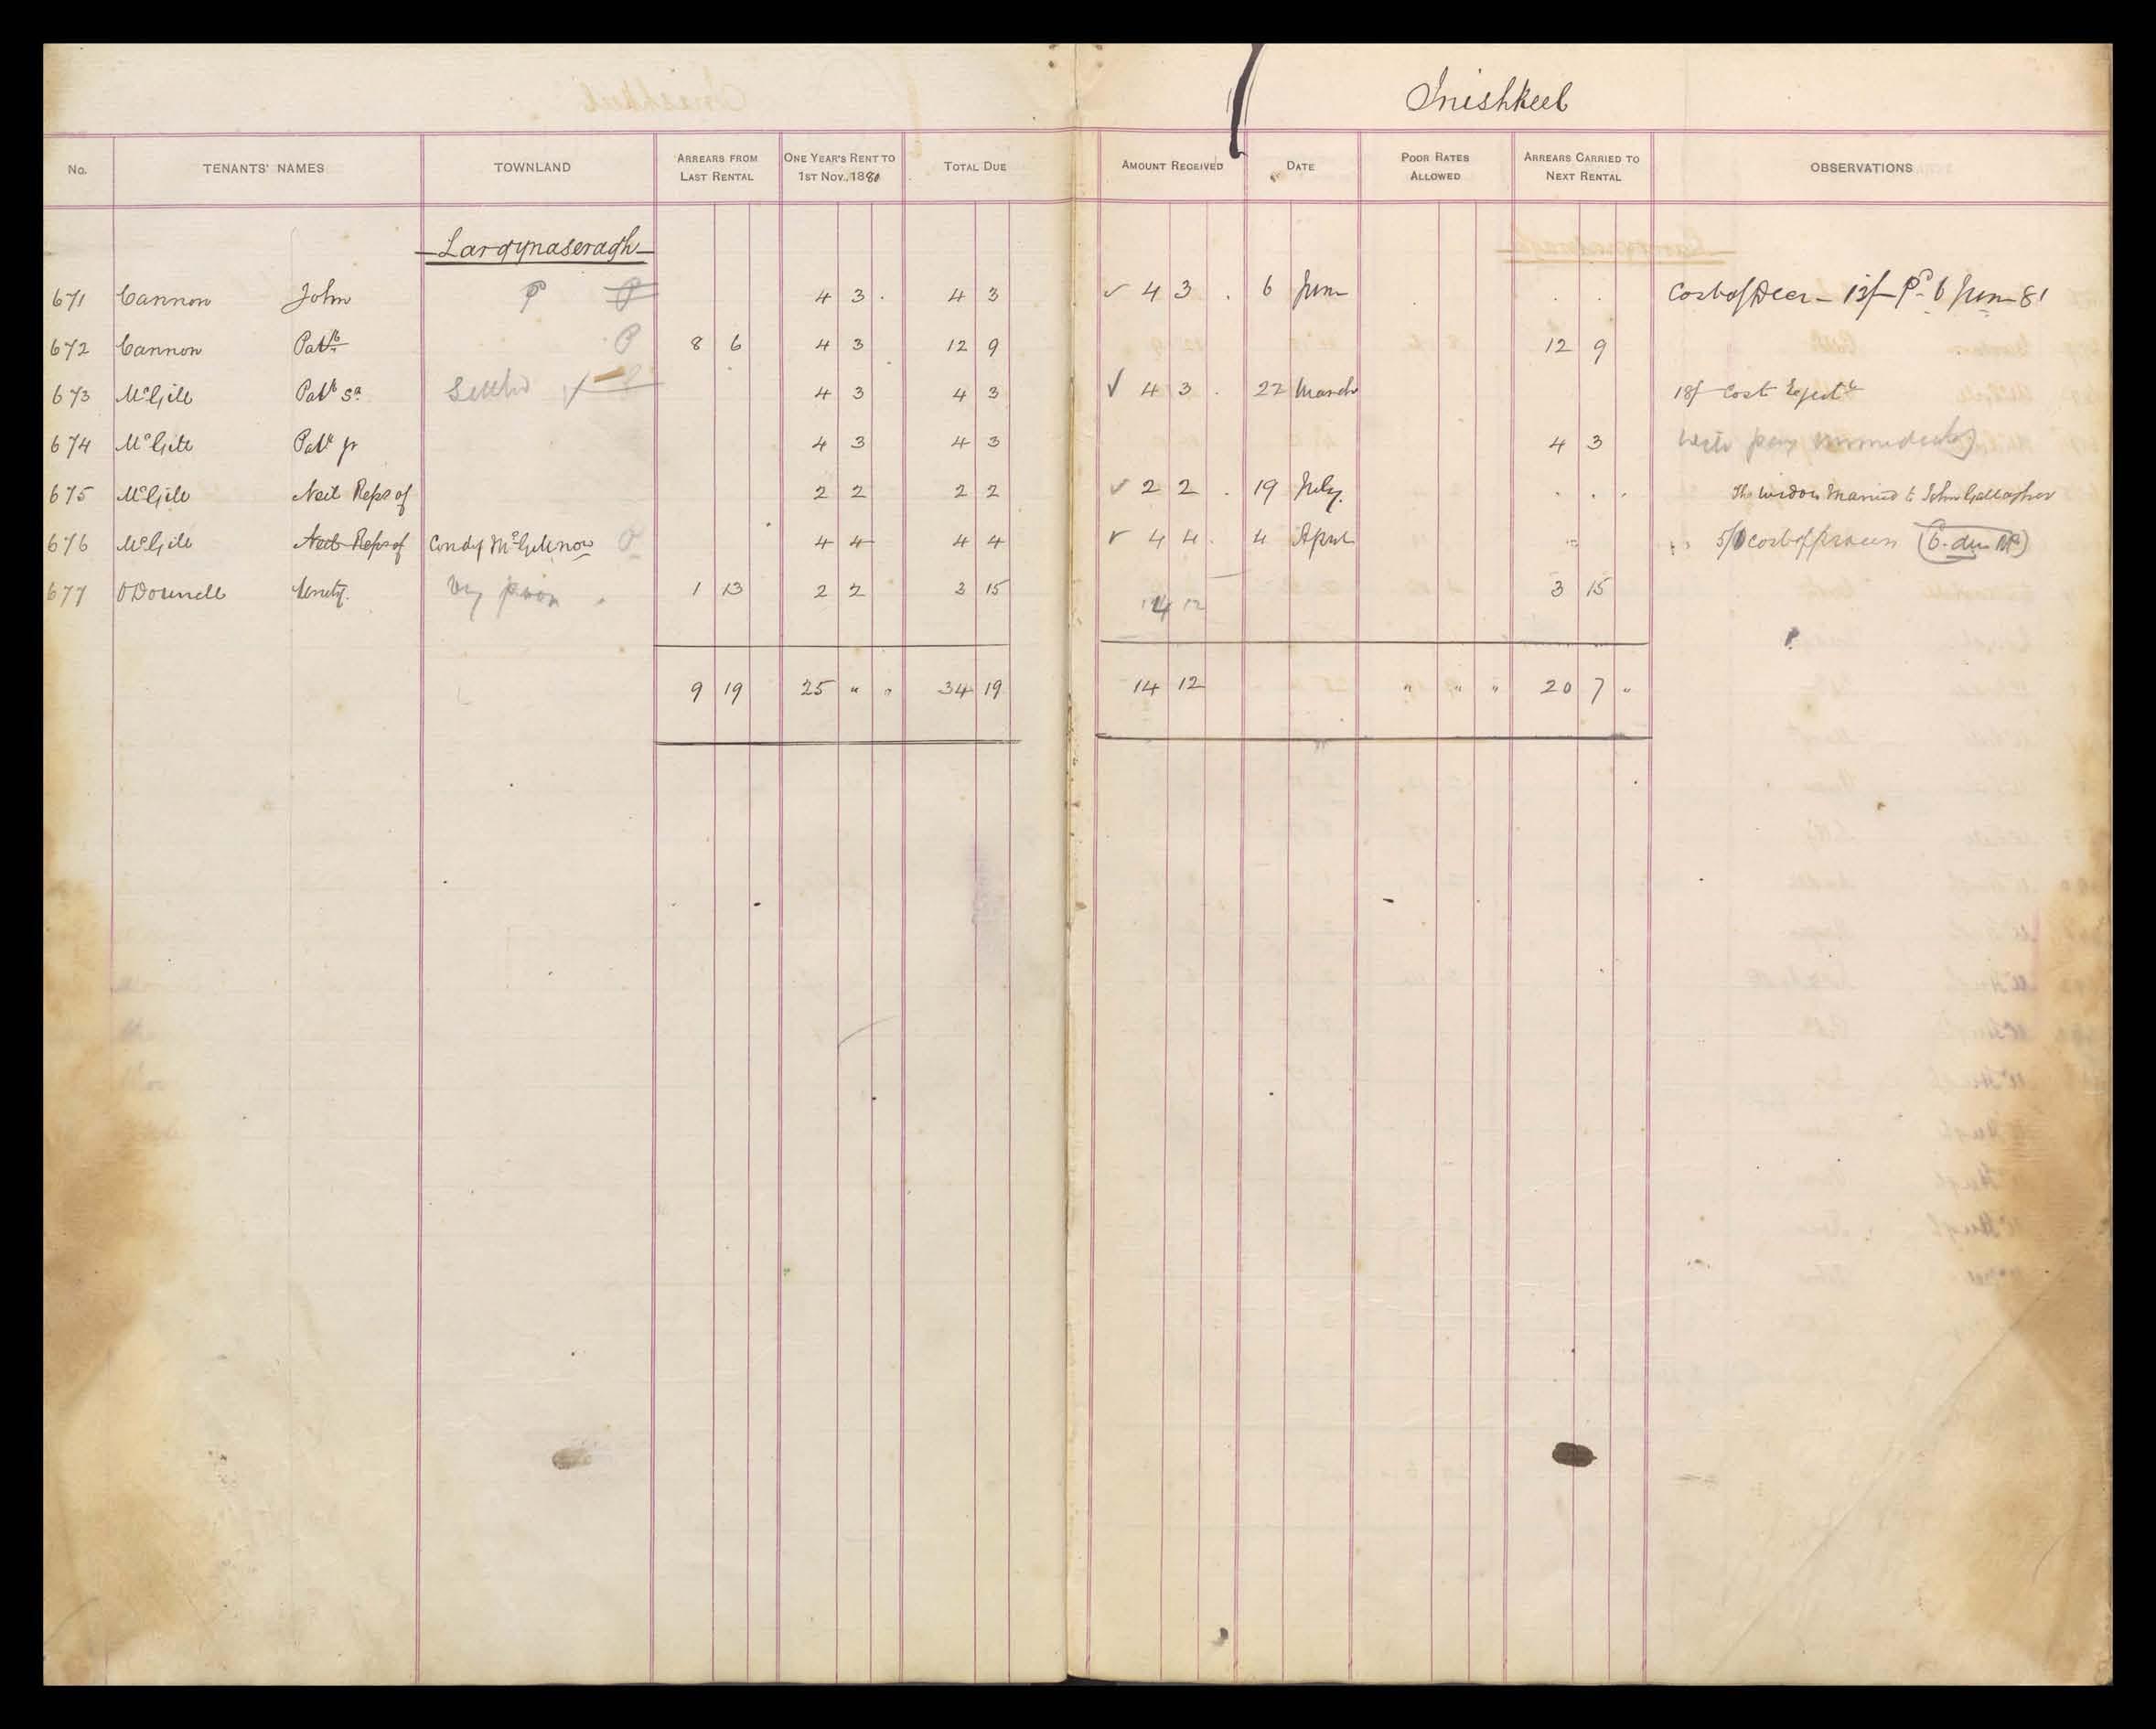 Inishkeel
No. TENANTS' NAMES TOWNLAND ARREARS FROM LAST RENTAL ONE YEAR'S RENT TO 1ST NOV. 1880 TOTAL DUE AMOUNT RECEIVED DATE POOR RATES ALLOWED ARREARS CARRIED TO NEXT RENTAL OBSERVATIONS
Largynaseragh
671 Cannon John P P 4 3 . 4 3 ✓ 4 3 . 6 June . . . Cost of Decr - 12/- Pd 6 June 81
672 Cannon Patk P 8 6 4 3 12 9 12 9
673 McGill Patk Sr Settled 4 3 4 3 ✓ 4 3 . 22 March 18/- Cost Eject
674 McGill Patk jr 4 3 4 3 4 3 Will pay immediately
675 McGill Neil Reps of 2 2 2 2 ✓ 2 2 . 19 July . . . The widow married to John Gallagher
676 McGill Neil Reps of Condy McGill now 4 4 4 4 ✓ 4 4 . 4 April " 5/ cost of process
677 O'Donnell Very poor 1 13 2 2 3 15 14 12 3 15
9 19 25 " " 34 19 14 12 " " " 20 7 "